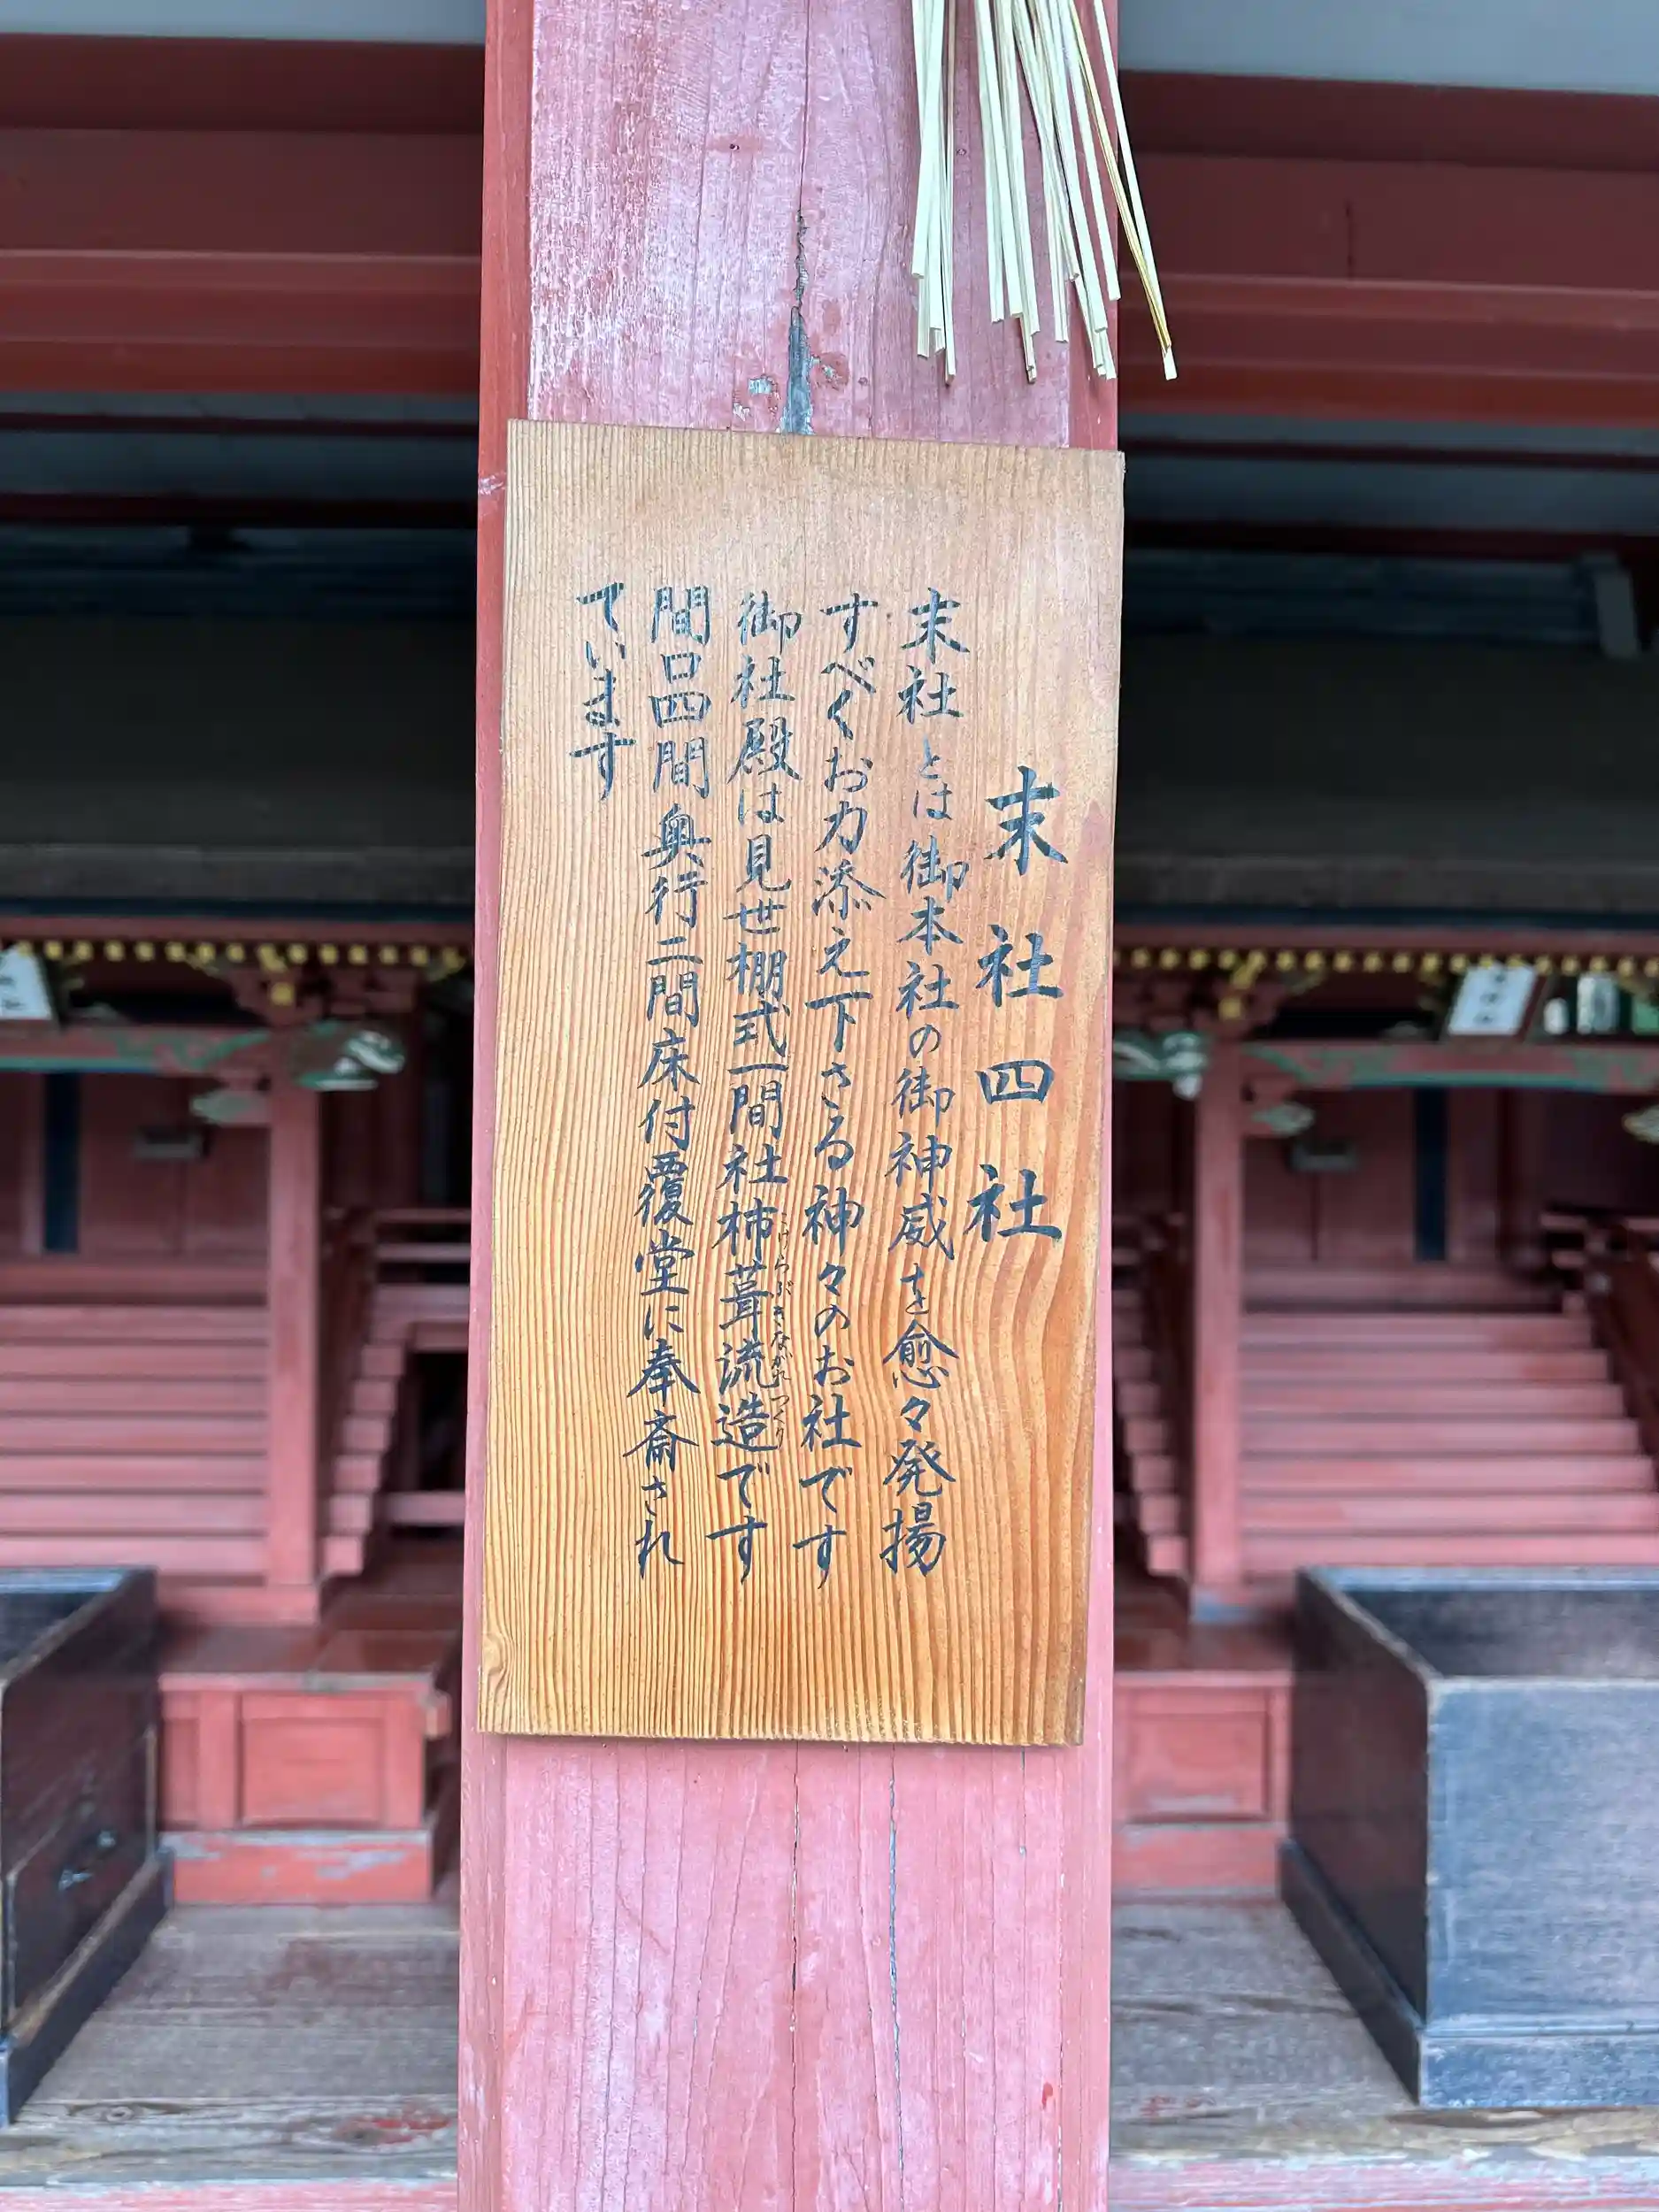 末社四社
末社とは御本社の御神威を愈々発揚
すべくお力添え下さる神々のお社です
御社殿は見世棚式一間社柿葺流造です
こけらぶきながれつくり
間口四間奥行二間床付覆堂に奉斎され
ています